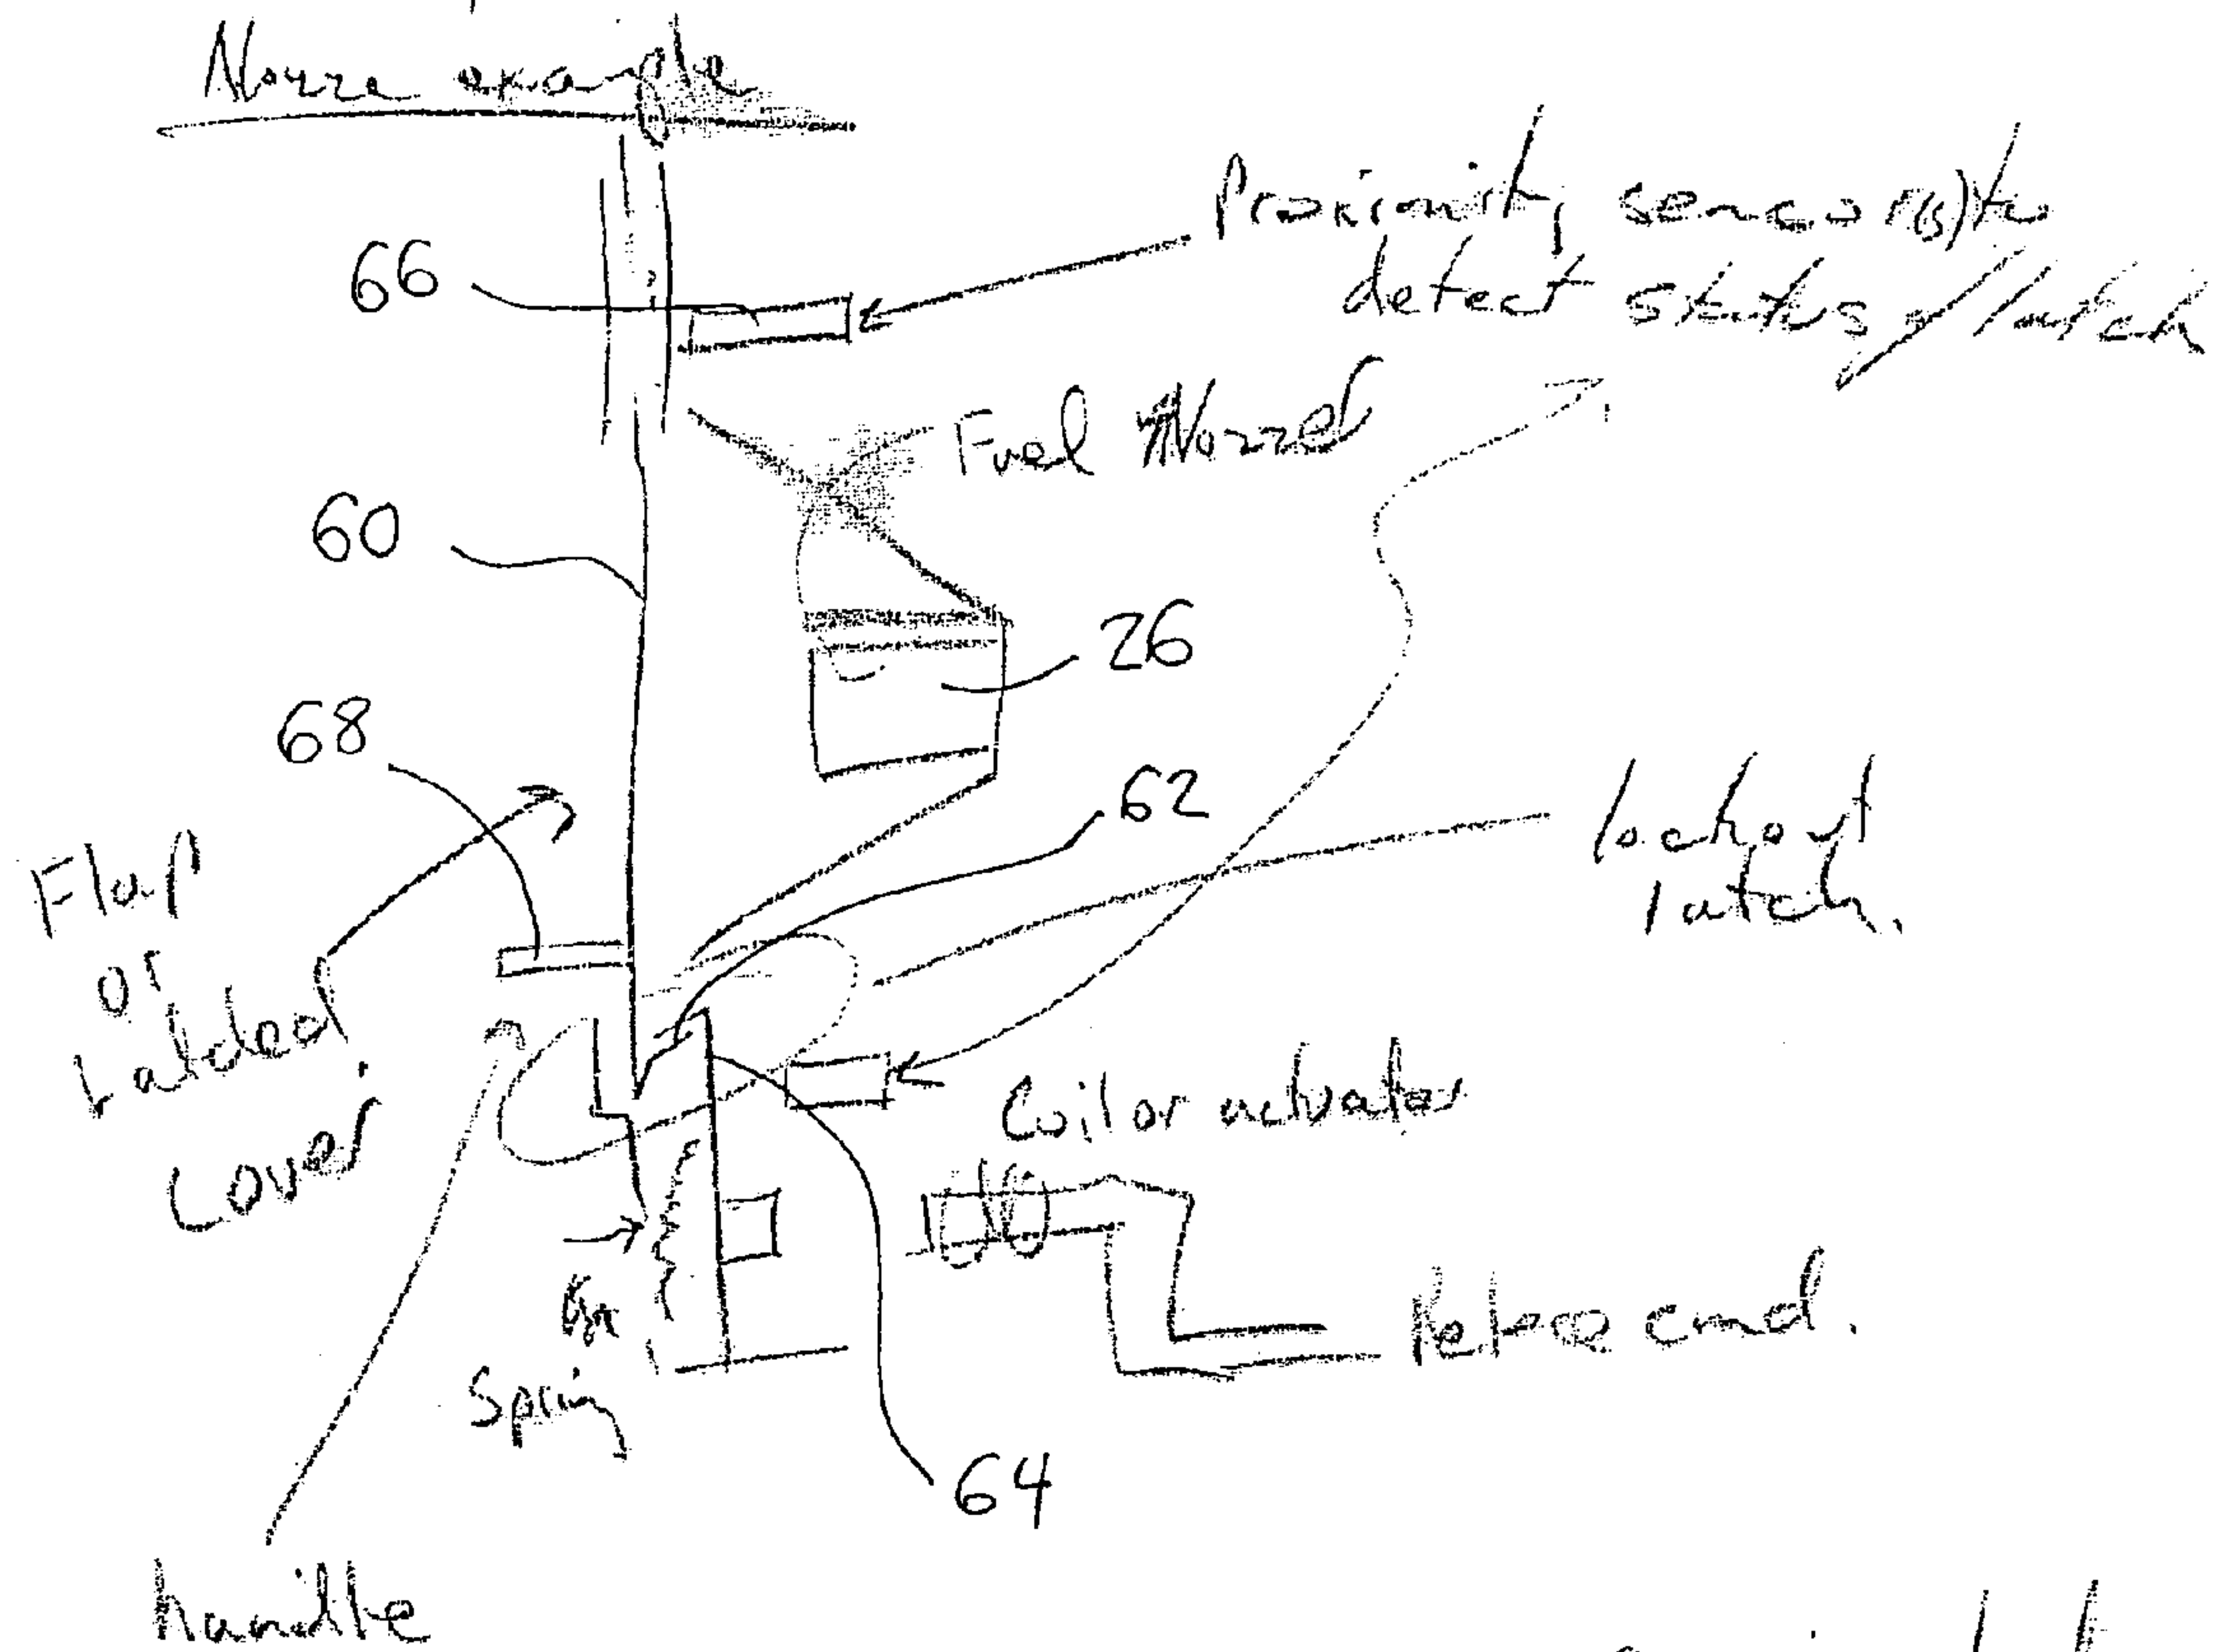 Nozzle example
Proximity sensor(s) to
detect status / latch
66
Fuel Nozzel
60
26
68
62
lockout
latch.
Flap
or
Latched
Cover
Coil or actuator
Release cmd.
Spring
64
handle